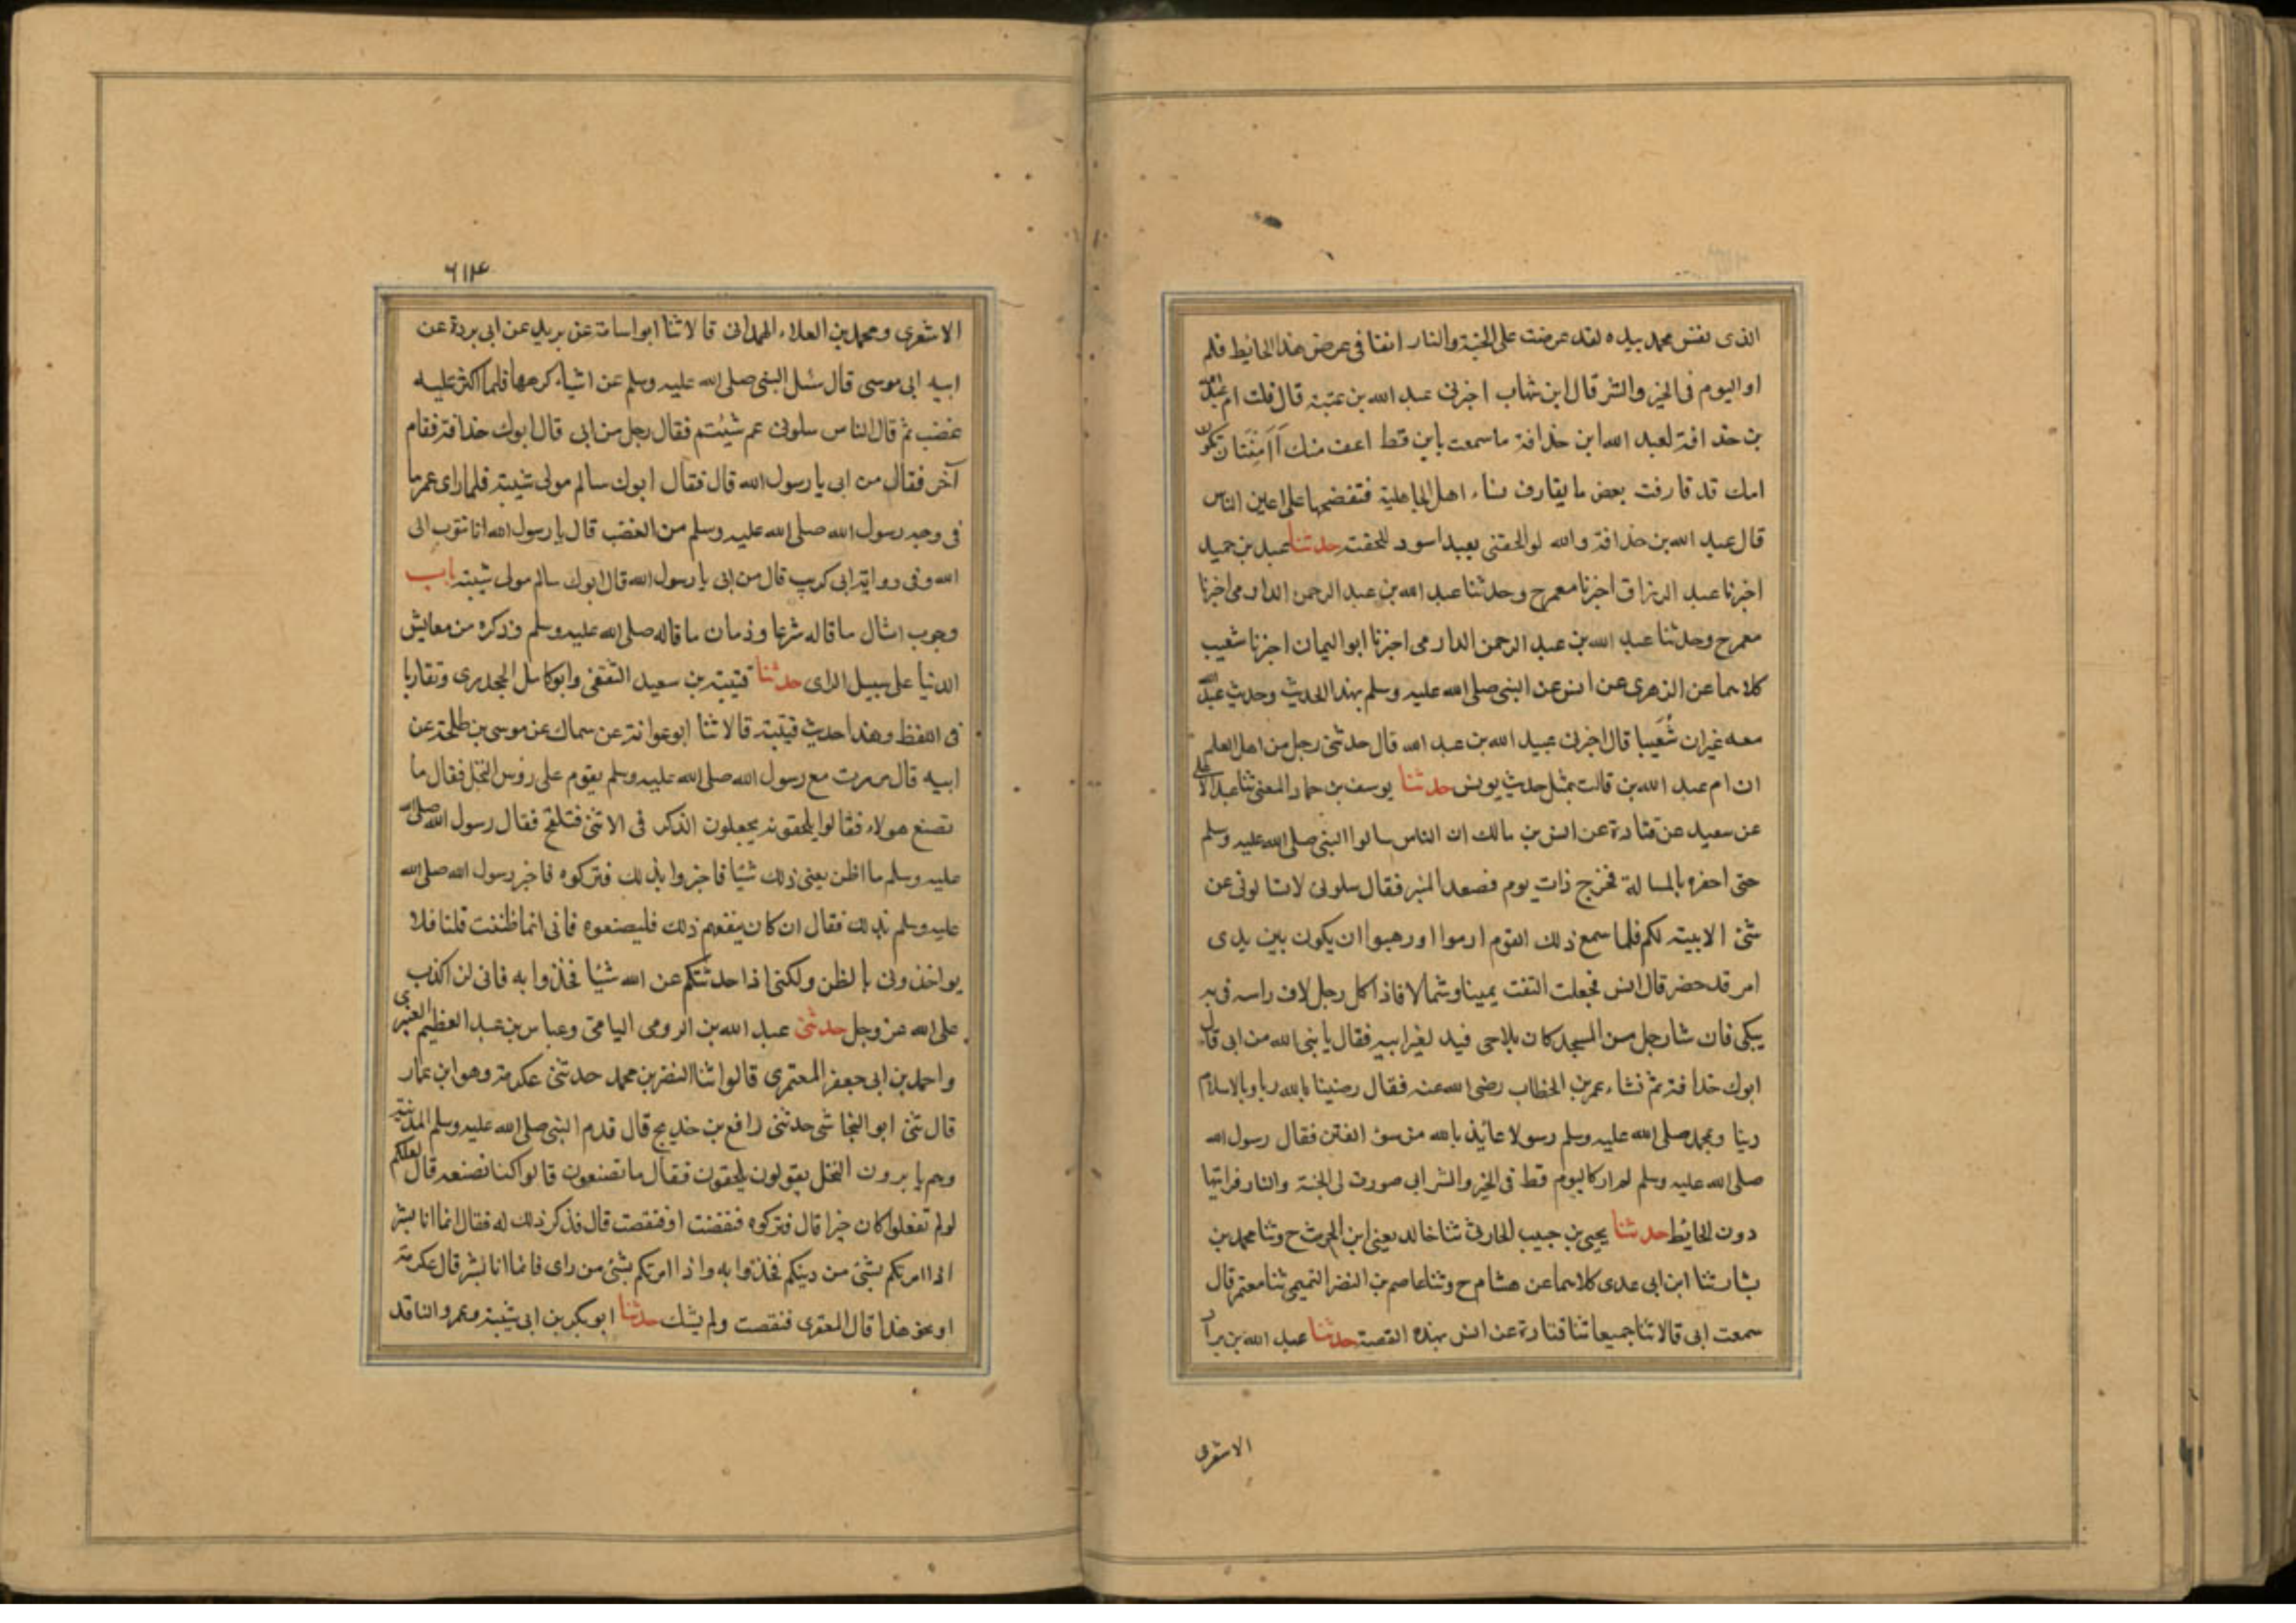 الذى نفس محمد بيده لقد عرضت على الجنة والنار انفا فى عرض هذا الحائط فلم
ار كاليوم فى الخير والشر قال ابن شهاب اخبرنى عبيد الله بن عبد الله بن عتبة قال قلت ام عبد الله
بن حذافة لعبد الله ابن حذافة ما سمعت باين قط اعق منك أأمنت ان تكون
امك قد قارفت بعض ما يقارف نساء اهل الجاهلية فتفضحها على اعين الناس
قال عبد الله بن حذافة والله لو الحقنى بعبد اسود للحقت حدثنا عبد بن حميد
اخبرنا عبد الرزاق اخبرنا معمر ح وحدثنا عبد الله بن عبد الرحمن الدارمى اخبرنا
معمر ح وحدثنا عبد الله بن عبد الرحمن الدارمى اخبرنا ابو اليمان اخبرنا شعيب
كلاهما عن الزهرى عن انس عن النبى صلى الله عليه وسلم بهذا الحديث وحديث عبيد الله
معه غير ان شُعَيبا قال اخبرنى عبيد الله بن عبد الله قال حدثنى رجل من اهل العلم
ان ام عبد الله بن قالت بمثل حديث يونس حدثنا يوسف بن حماد المعنى ثنا عبد الاعلى
عن سعيد عن قتادة عن انس بن مالك ان الناس سالوا النبى صلى الله عليه وسلم
حتى احفوه بالمسالة فخرج ذات يوم فصعد المنبر فقال سلونى لا تسالونى عن
شئ الا بينته لكم فلما سمع ذلك القوم ارموا ورهبوا ان يكون بين يدى
امر قد حضر قال انس فجعلت التفت يمينا وشمالا فاذا كل رجل لاف راسه فى
يبكى فان شا رجل من المسجد كان يلاحى فيد لغير ابيه فقال يا نبى الله من ابى قال
ابوك حذافة ثم نشاء عمر بن الخطاب رضى الله عنه فقال رضينا بالله ربا وبالاسلام
دينا وبمحمد صلى الله عليه وسلم رسولا عائذ بالله من سوء الفتن فقال رسول الله
صلى الله عليه وسلم لم ار كاليوم قط فى الخير والشر انى صورت لى الجنة والنار فرايتها
دون الحائط حدثنا يحيى بن حبيب الحارثى ثنا خالد يعنى ابن الحرث ح وثنا محمد بن
بشار ثنا ابن ابى عدى كلاهما عن هشام ح وثنا عاصم بن النضر التميمى ثنا معتمر قال
سمعت ابى قالا ثنا جميعا ثنا قتادة عن انس بهذه القصة حدثنا عبد الله بن براد
الاشعرى
٦١٤
الاشعرى ومحمد بن العلاء الهمدانى قالا ثنا ابو اسامة عن بريد عن ابى بردة عن
ابيه ابى موسى قال سئل النبى صلى الله عليه وسلم عن اشياء كرهها فلما اكثر عليه
غضب ثم قال الناس سلونى عم شئتم فقال رجل من ابى قال ابوك حذافة فقام
آخر فقال من ابى يا رسول الله قال فقال ابوك سالم مولى شيبة فلما راى عمر ما
فى وجه رسول الله صلى الله عليه وسلم من الغضب قال يا رسول الله انا نتوب الى
الله وفى رواية ابى كريب قال من ابى يا رسول الله قال ابوك سالم مولى شيبة باب
وجوب امتثال ما قاله شرعا وذمان ما قاله صلى الله عليه وسلم وذكره من معايش
الدنيا على سبيل الراى حدثنا قتيبة بن سعيد الثقفى وابو كامل الجحدرى وتقاربا
فى اللفظ وهذا حديث قتيبة قالا ثنا ابو عوانة عن سماك عن موسى بن طلحة عن
ابيه قال مررت مع رسول الله صلى الله عليه وسلم بقوم على روس النخل فقال ما
تصنع هولاء فقالوا يلحقونه يجعلون الذكر فى الانثى فتلقح فقال رسول الله صلى الله
عليه وسلم ما اظن يعنى ذلك شيئا فاخبروا بذلك فتركوه فاخبر رسول الله صلى الله
عليه وسلم بذلك فقال ان كان ينفعهم ذلك فليصنعوه فانى انما ظننت ظنا فلا
يواخذونى بالظن ولكنى اذا حدثتكم عن الله شيئا فخذوا به فانى لن اكذب
على الله عز وجل حدثنى عبد الله بن الرومى اليامى وعباس بن عبد العظيم العنبرى
واحمد بن ابى جعفر المعتمرى قالوا ثنا النضر بن محمد حدثنى عكرمة وهو ابن عمار
قال ثنى ابو النجاشى حدثنى رافع بن خديج قال قدم النبى صلى الله عليه وسلم المدينة
وهم يابرون النخل يقولون يلحقون فقال ما تصنعون قالوا كنا نصنعه قال لعلكم
لو لم تفعلوا كان خيرا قال فتركوه فنفضت او فنقصت قال فذكر ذلك له فقال انما انا بشر
اذا امرتكم بشئ من دينكم فخذوا به واذا امرتكم بشئ من راى فانما انا بشر قال عكرمة
او نحو هذا قال المعقرى فنقصت ولم يشك حدثنا ابو بكر بن ابى شيبة وعمرو الناقد